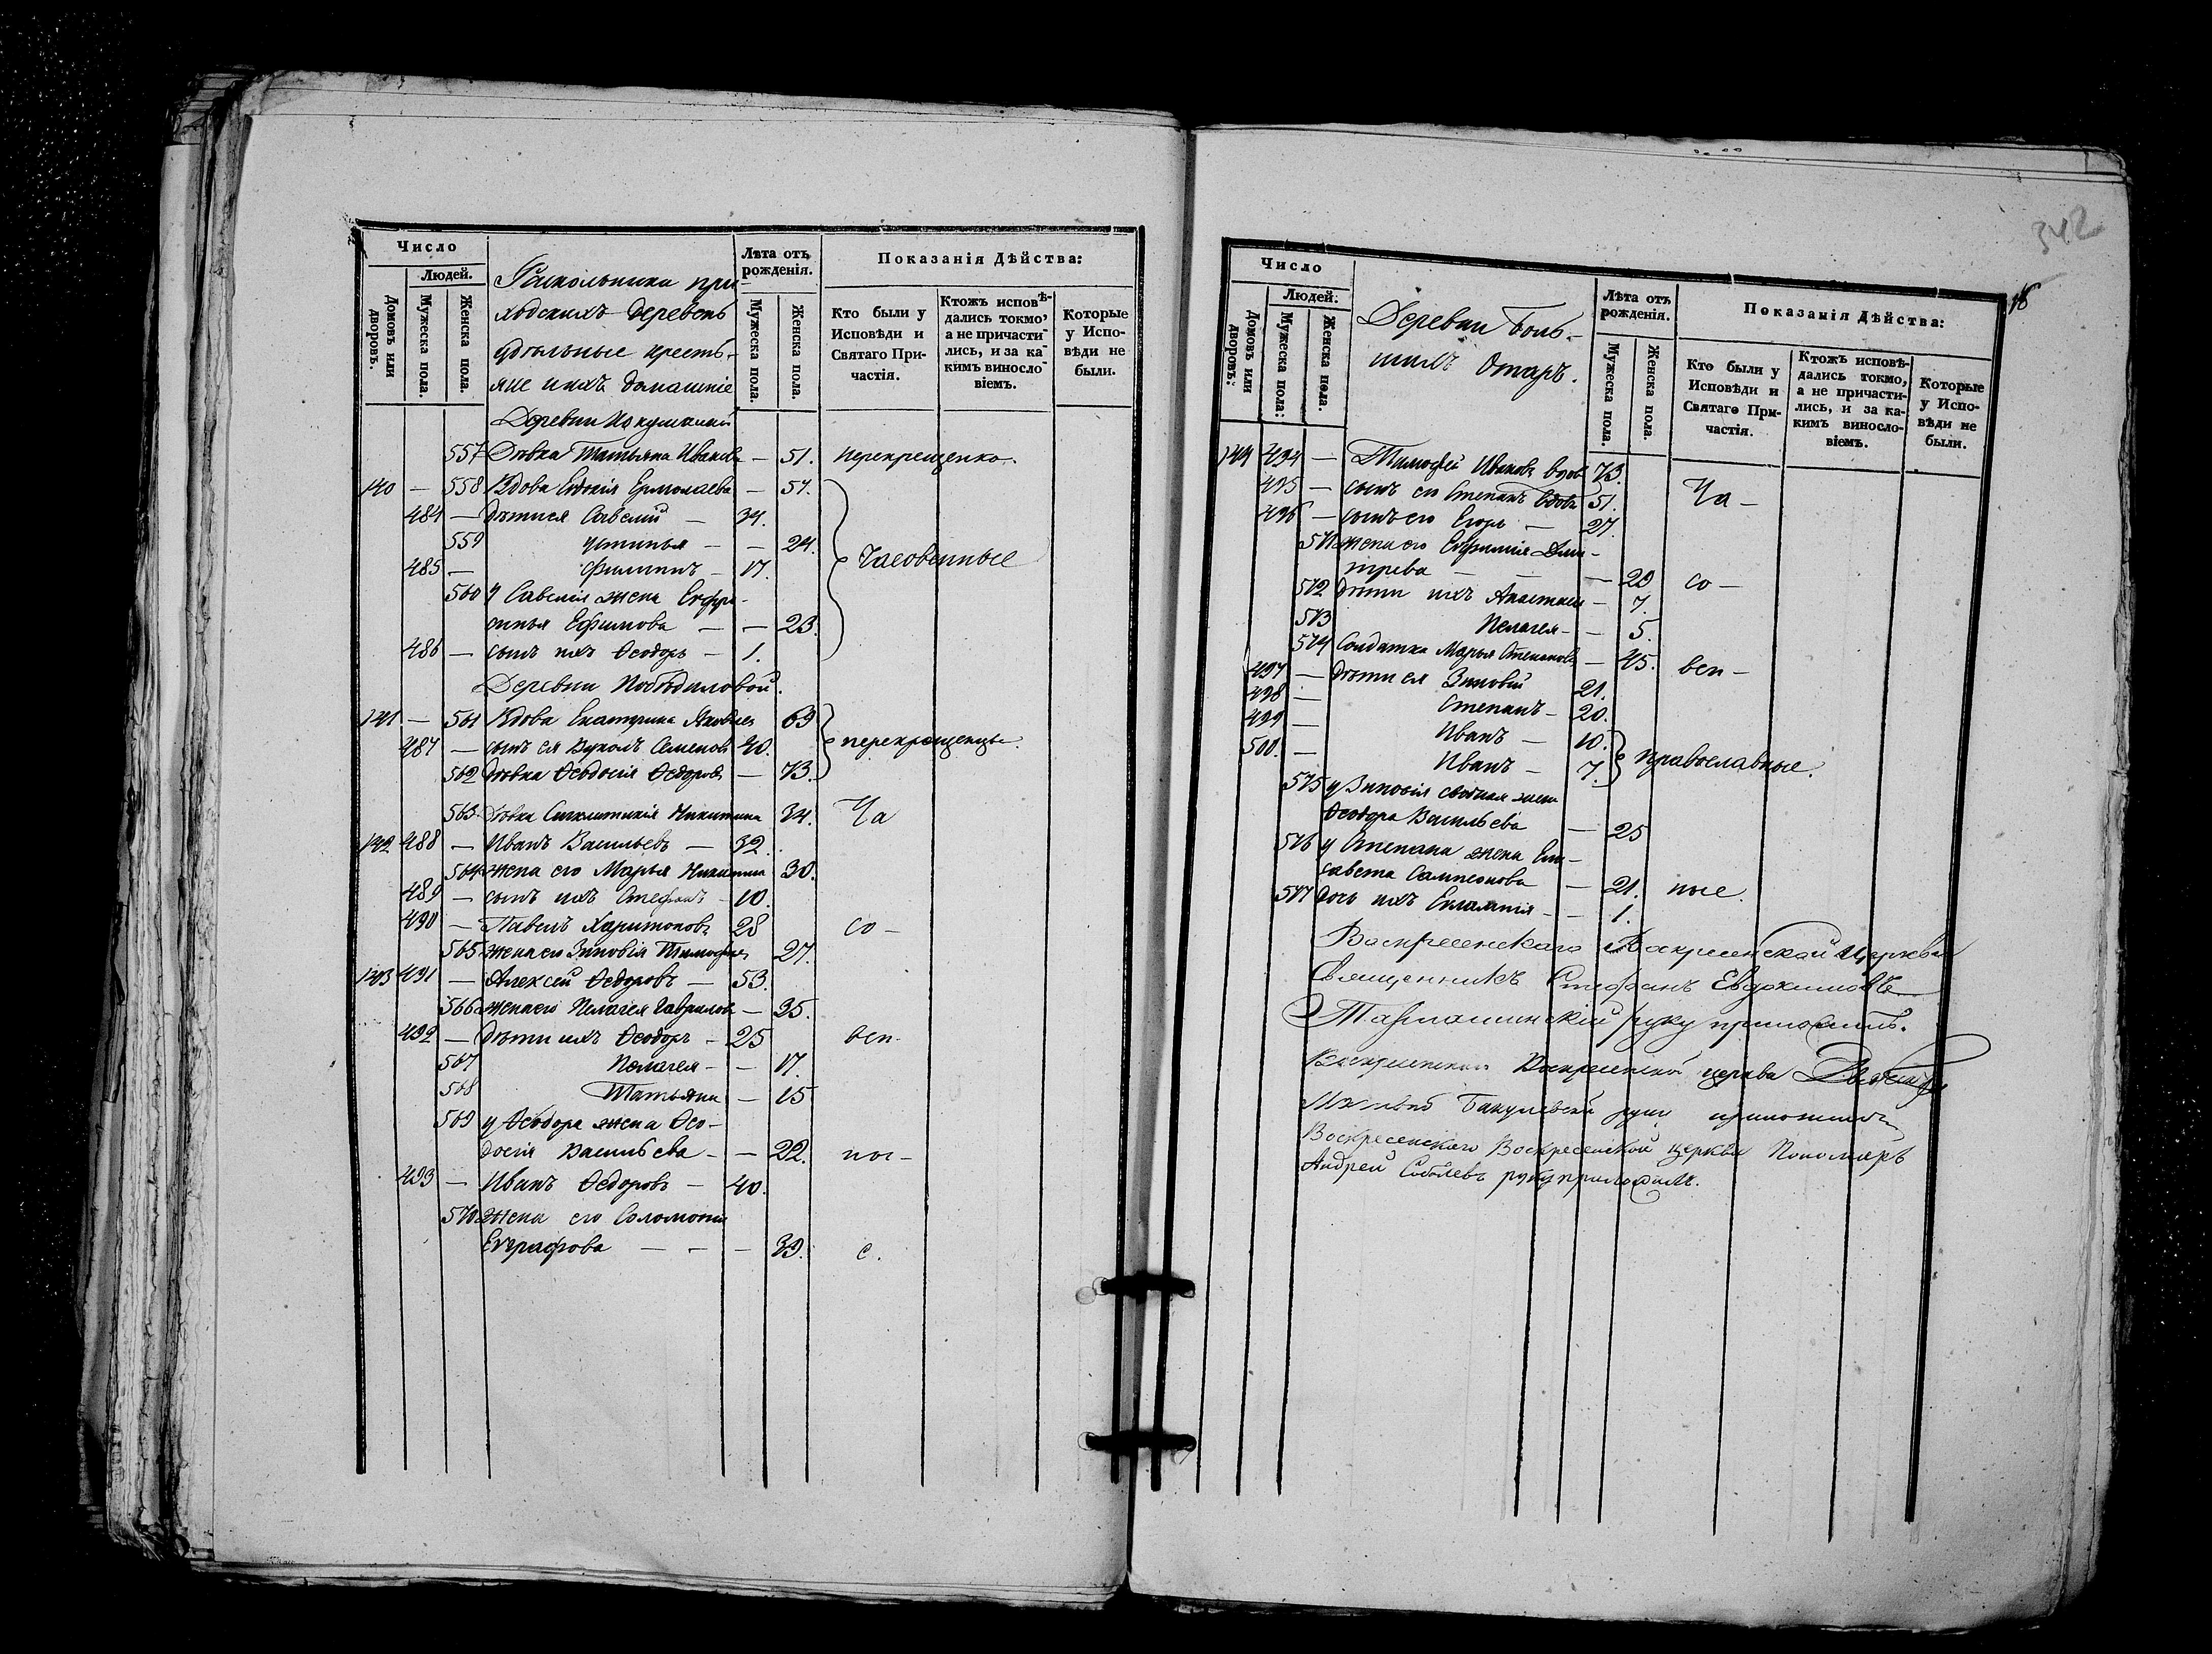 Число
Людей.
Домовъ или дворовъ.
Мужеска пола.
Женска пола.
Раскольники при-
ходскихъ деревень
удѣльные кресть-
яне и ихъ домашніе
Лѣта отъ рожденія.
Мужеска пола.
Женска пола.
Показанія Дѣйства:
Кто были у Исповѣди и Святаго Причастія.
Ктожъ исповѣдались токмо, а не причастились, и за какимъ винословіемъ.
Которые у Исповѣди не были.
Деревни
557 Дѣвка Татьяна Иванова — 51. перекрещенка.
140 — 558 Вдова Евдокія Ермолаева — 57.
484 — дѣти ея Савелій — 34.
559 Устинья — — 24. Часовенные
485 — Филиппъ — 17.
560 у Савелія жена Евфро-
синья Ефимова — — 23.
486 — сынъ ихъ Ѳеодоръ — 1.
Деревни Побѣдиловой.
141 — 561 Вдова Екатерина 63
487 — сынъ ея Вуколъ Семеновъ 40. перекрещенцы.
562 дѣвка Ѳеодосія Ѳедорова — 73.
563 Дѣвка Синклитикія Никитина 34. Ча
142 488 — Иванъ Васильевъ — 32.
564 жена его Марья Никитина 30.
489 — сынъ ихъ Стефанъ — 10.
490 — Павелъ Харитоновъ 28 со —
565 жена его Зиновія 27.
143 491 — Алексей Ѳедоровъ — 53.
566 жена его Пелагея Гаврилова — 35.
492 — дѣти ихъ Ѳеодоръ — 25 вен-
567 Пелагея — — 17.
568 Татьяна — 15
569 у Ѳеодора жена Ѳео-
досія Васильева — — 22. ны —
493 — Иванъ Ѳедоровъ — 40.
570 жена его Соломонія
Евграфова — — — 39. е.
342
Число
Людей.
Домовъ или дворовъ:
Мужеска пола:
Женска пола.
Деревни Боль-
шихъ Отаръ.
Лѣта отъ рожденія.
Мужеска пола.
Женска пола.
Показанія Дѣйства:
Кто были у Исповѣди и Святаго Причастія.
Ктожъ исповѣдались токмо, а не причастились, и за какимъ винословіемъ.
Которые у Исповѣди не были.
144 494 — Тимофей Ивановъ вдовъ 73.
495 — сынъ его Степанъ вдовъ 51. Ча —
496 — сынъ его Егоръ — 27.
571 жена его Евфимія Дми-
тріева — — — 29 со —
572 дѣти ихъ Анастасія — 7.
573 Пелагея — — 5.
574 Солдатка Марья Степанова — 45. вен —
497 — дѣти ея Зиновій 21.
498 — Степанъ — 20.
499 — Иванъ — 10.
500. — Иванъ — 7. православные.
575 у Зиновія сводная жена
Ѳеодора Васильева — 25
576 у Степана жена Ели-
савета Сампсонова — 21. ные.
577 дочь ихъ Евлампія — — 1.
Воскресенскаго Воскресенской церкви
Священникъ Стефанъ Евдокимовъ
руку приложилъ.
Воскресенской церкви
руку приложилъ
Воскресенскаго Воскресенской церкви Пономарь
Андрей Соболевъ руку приложилъ.